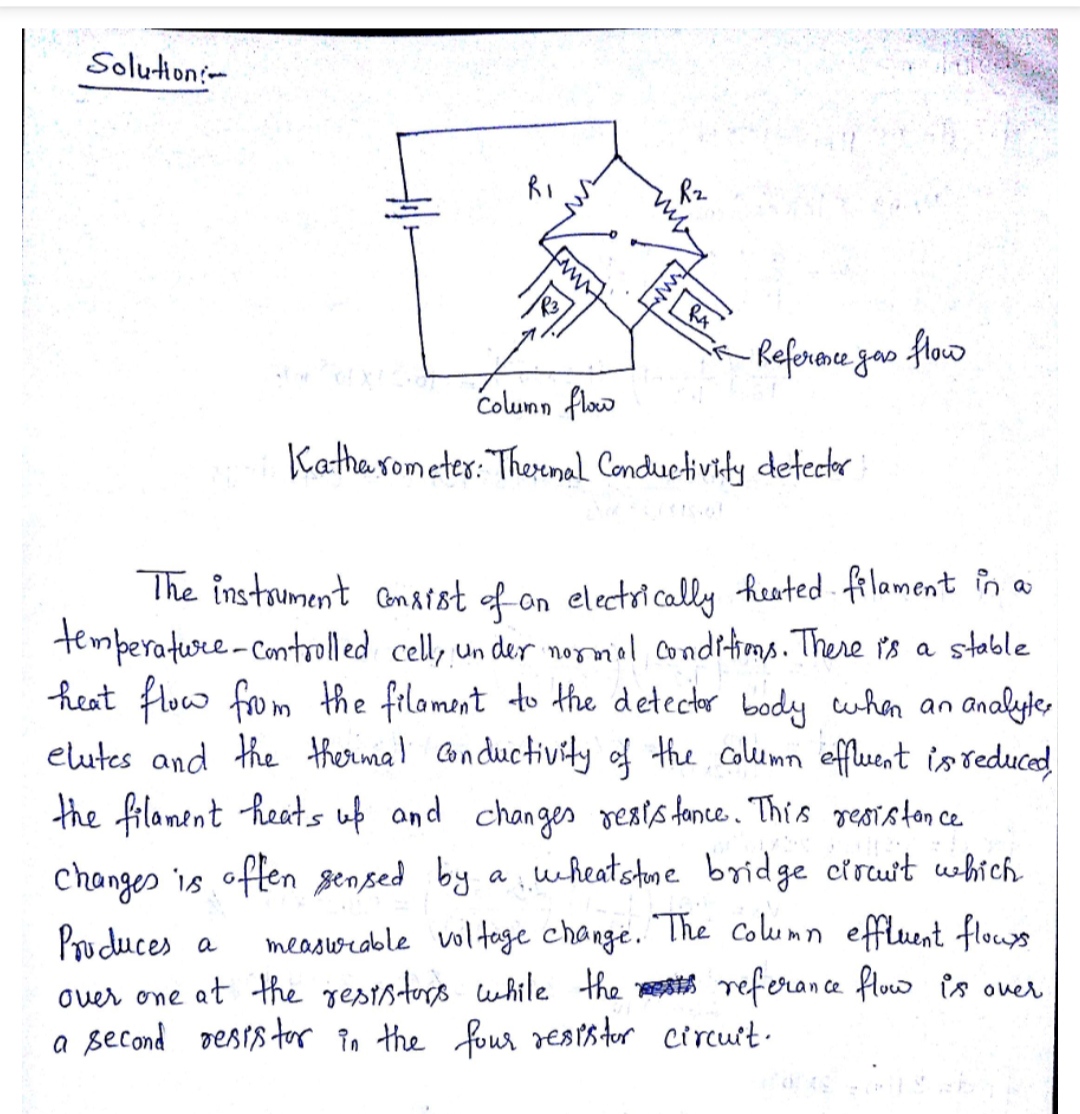 Solution:-
R1
R2
R3
R4
Reference gas flow
Column flow
Katharometer: Thermal Conductivity detector
The instrument Consist of an electrically heated filament in a
temperature-controlled cell, under normal conditions. There is a stable
heat flow from the filament to the detector body when an analyte,
elutes and the thermal conductivity of the column effluent is reduced,
the filament heats up and changes resistance. This resistance
changes is often sensed by a wheatstone bridge circuit which
Produces a measurable voltage change. The column effluent flows
over one at the resistors while the referance flow is over
a second resistor in the four resistor circuit.